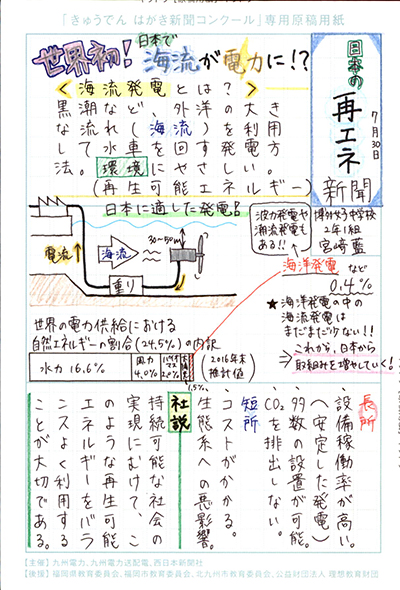 「きゅうでん はがき新聞コンクール」専用原稿用紙
日本の
再エネ
新聞
7月30日
博多女子中学校
2年1組
宮﨑 藍
世界初!
日本で
海流が電力に!?
<海流発電とは?>
黒潮など、外洋の大き
な流れ(海流)を利用
して水車を回す発電方
法。環境にやさしい。
(再生可能エネルギー)
日本に適した発電!
波力発電や
潮流発電も
ある!!
電流
海流
30~50m
重り
海洋発電など
0.4%
★海洋発電の中の
海流発電は
まだまだ少ない!!
これから、日本から
取組みを増やしていく!
世界の電力供給における
自然エネルギーの割合(24.5%)の内訳
水力 16.6%
風力
4.0%
バイオマス
2.0%
太陽光
1.5%
2016年末
推計値
長所
設備稼働率が高い。
(安定した発電)
多数の設置が可能。
CO₂を排出しない。
短所
コストがかかる。
生態系への悪影響。
社説
持続可能な社会の
実現にむけて、こ
のような再生可能
エネルギーをバラ
ンスよく利用する
ことが大切である。
【主催】九州電力、九州電力送配電、西日本新聞社
【後援】福岡県教育委員会、福岡市教育委員会、北九州市教育委員会、公益財団法人 理想教育財団